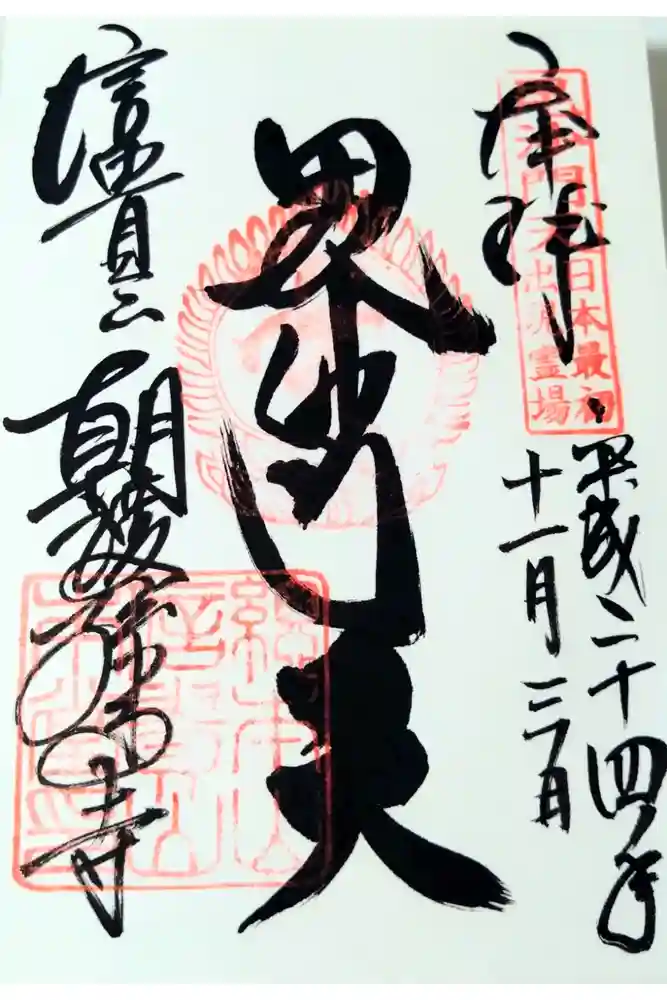 奉拝
日本最初
毘沙門天
出現霊場
平成二十四年
十一月三日
毘沙門天
信貴山
朝護孫子寺